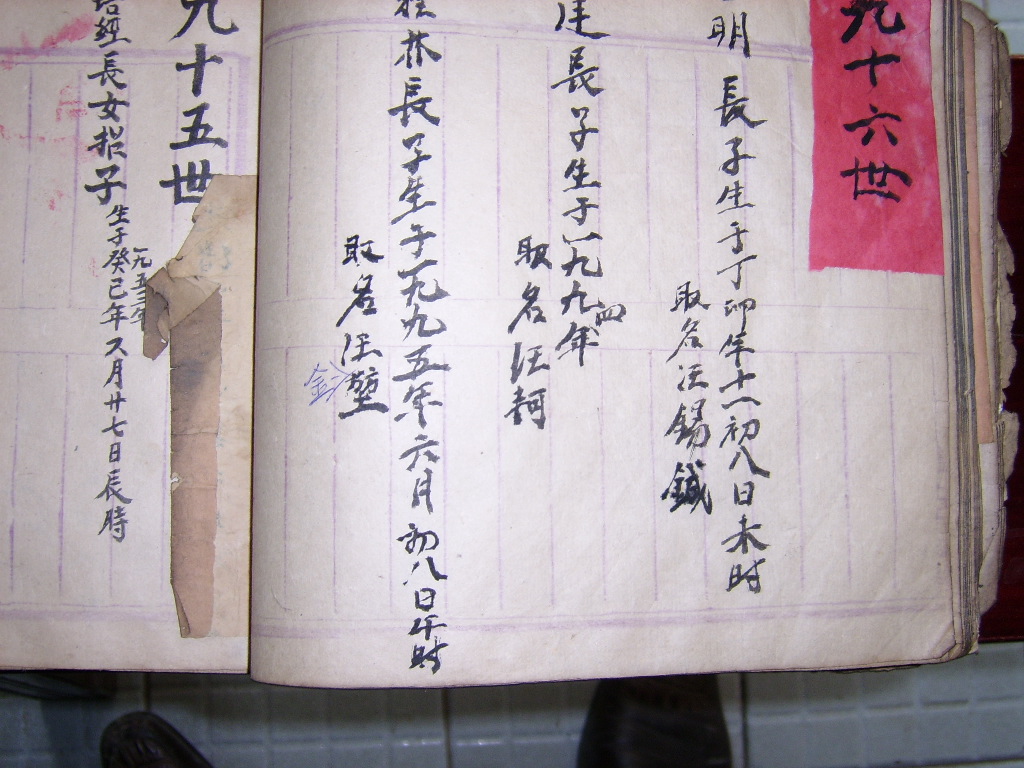 九十六世
明 長子生于丁卯年十一初八日未时
取名汪錫鋮
長子生于一九九四年
取名汪
林長子生于一九九五年六月初八日午时
取名汪
九十五世
經長女招子生于癸巳年
一九五三年
月廿七日辰時